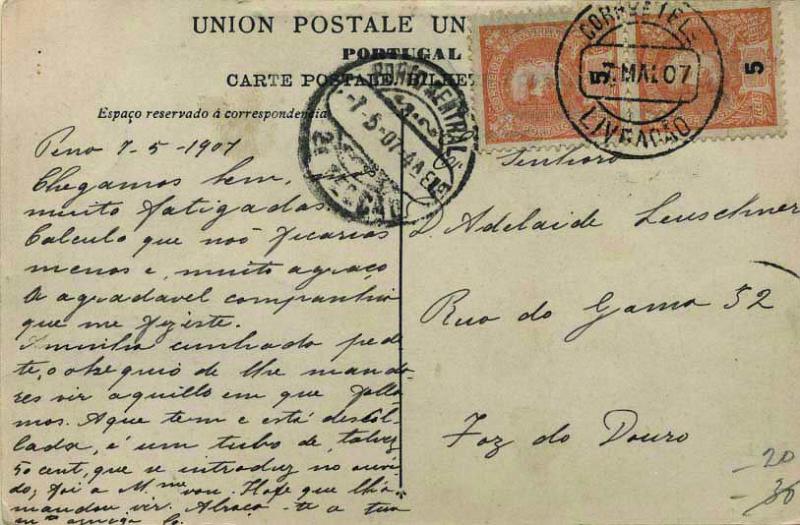 UNION POSTALE UN
PORTUGAL
CARTE POSTALE. BILHET
Espaço reservado á correspondencia
CORREIO E TELE
5 7 MAI. 07 5
LIVRAÇÃO
PORTO CENTRAL
7-5-07
2ª SECÇÃO
7-5-1907
Chegamos bem,
muito fatigadas.
Calculo que nós ficarias
menos e, muito agraço
a agradavel companhia
que me fizeste.
A minha cunhada pede
te, o obsequio de lhe manda
res vir aquillo em que falla
mos. A que tem e está descol
lada, é um tubo de, talvez
50 cent, que se introduz no ouvi
do, foi a M.me que lh'a
mandou vir. Abraça-te a tua
amiga
Senhora
D. Adelaide Leuschner
Rua do Gama 52
Foz do Douro
20
36